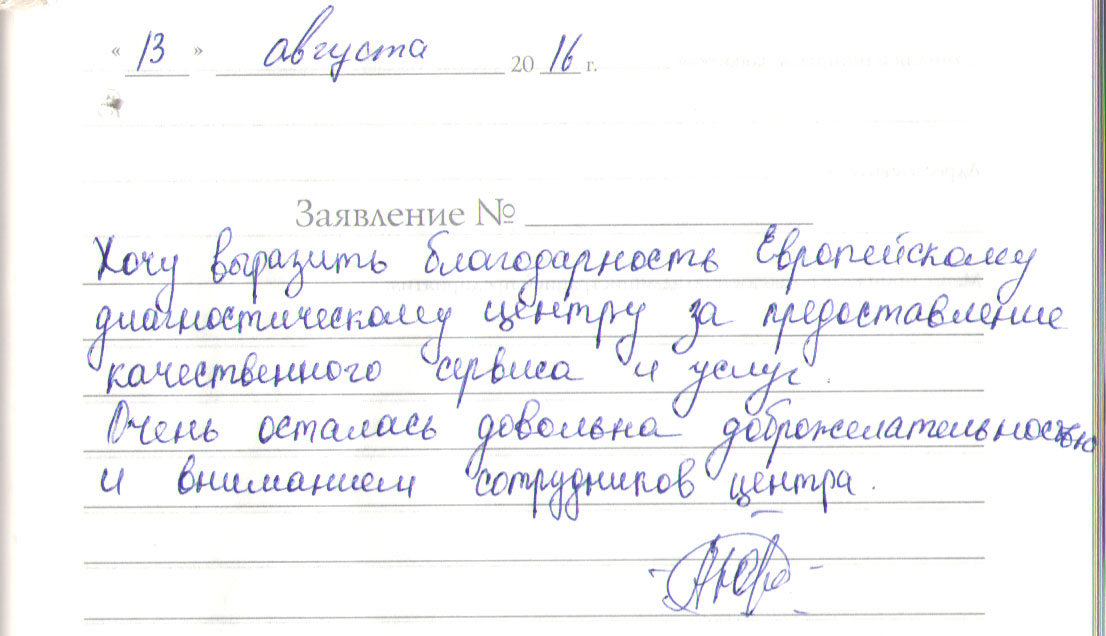 « 13 » августа 2016 г.
Заявление №
Хочу выразить благодарность Европейскому
диагностическому центру за предоставление
качественного сервиса и услуг.
Очень осталась довольна доброжелательностью
и вниманием сотрудников центра.